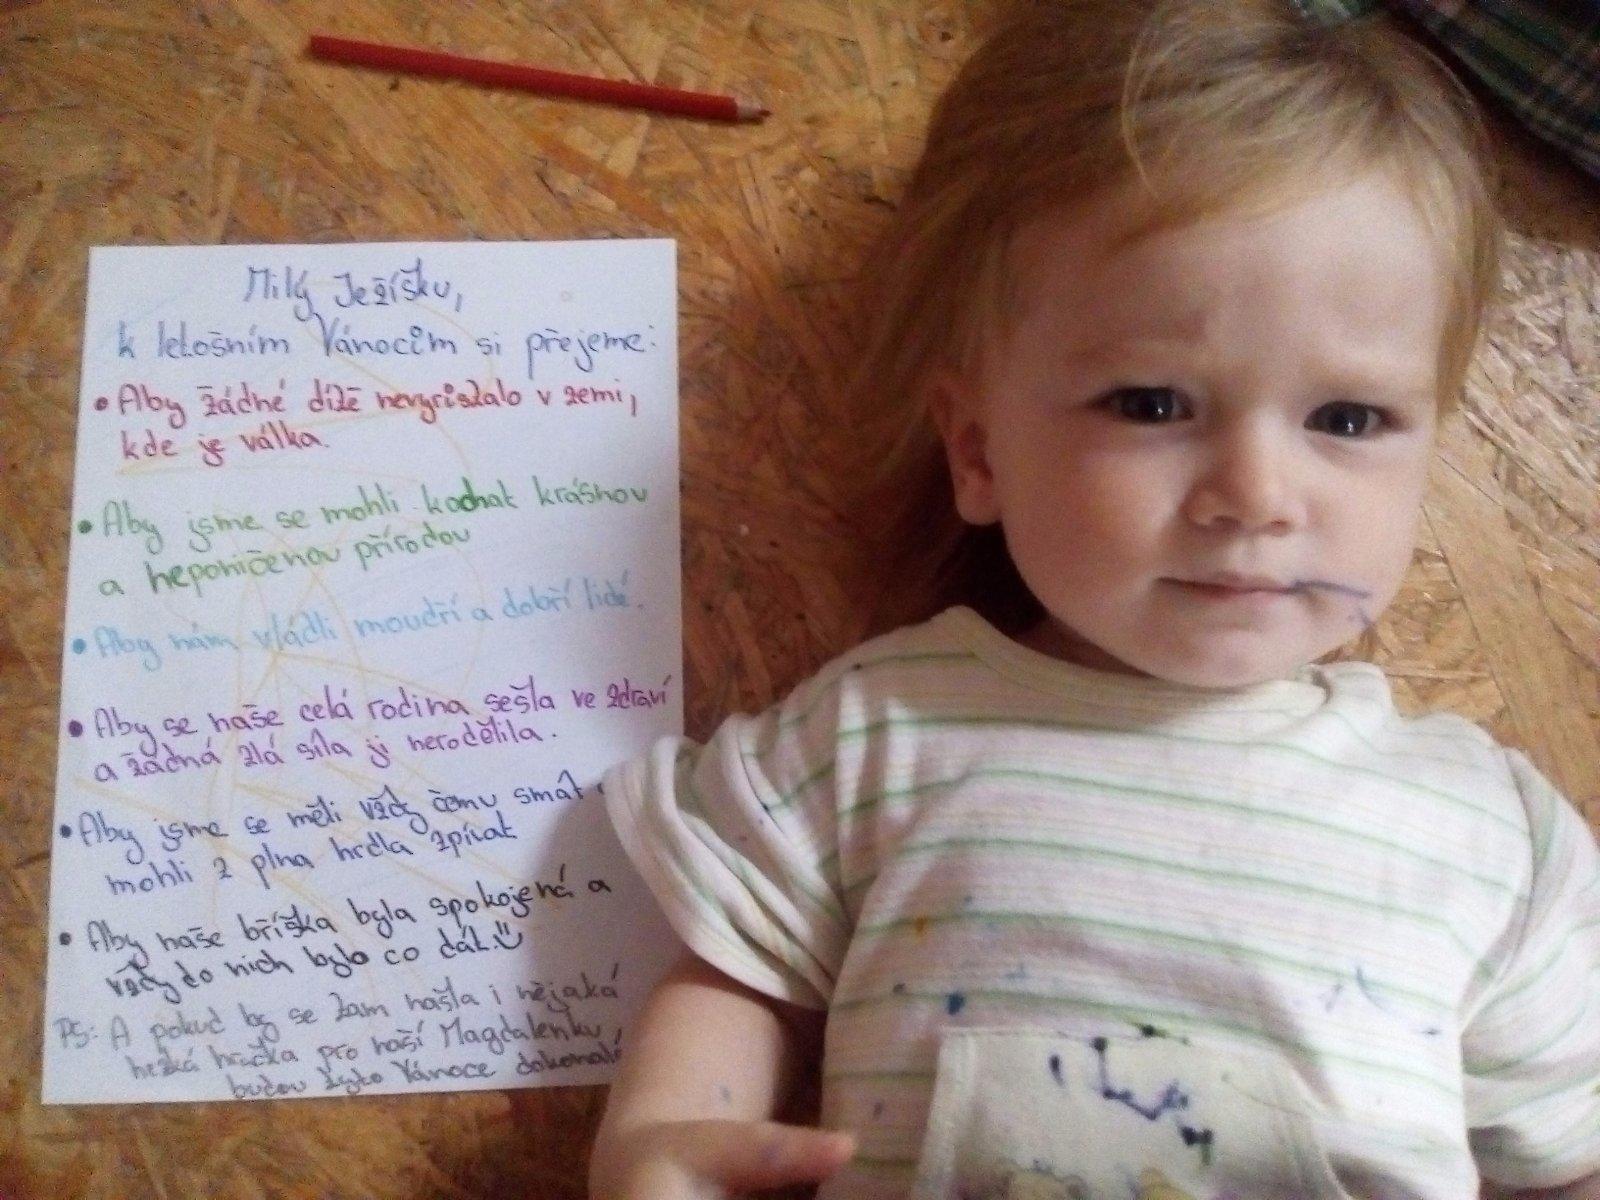 Milý Ježíšku,
k letošním Vánocům si přejeme:
• Aby žádné dítě nevyrůstalo v zemi,
kde je válka.
• Aby jsme se mohli kochat krásnou
a neponičenou přírodou
• Aby nám vládli moudří a dobří lidé.
• Aby se naše celá rodina sešla ve zdraví
a žádná zlá síla ji nerodělila.
• Aby jsme se měli vždy čemu smát
mohli z plna hrdla zpívat
• Aby naše bříška byla spokojená a
vždy do nich bylo co dát.
PS: A pokud by se tam našla i nějaká
hezká hračka pro naší Magdalenku,
budou tyto Vánoce dokonalé